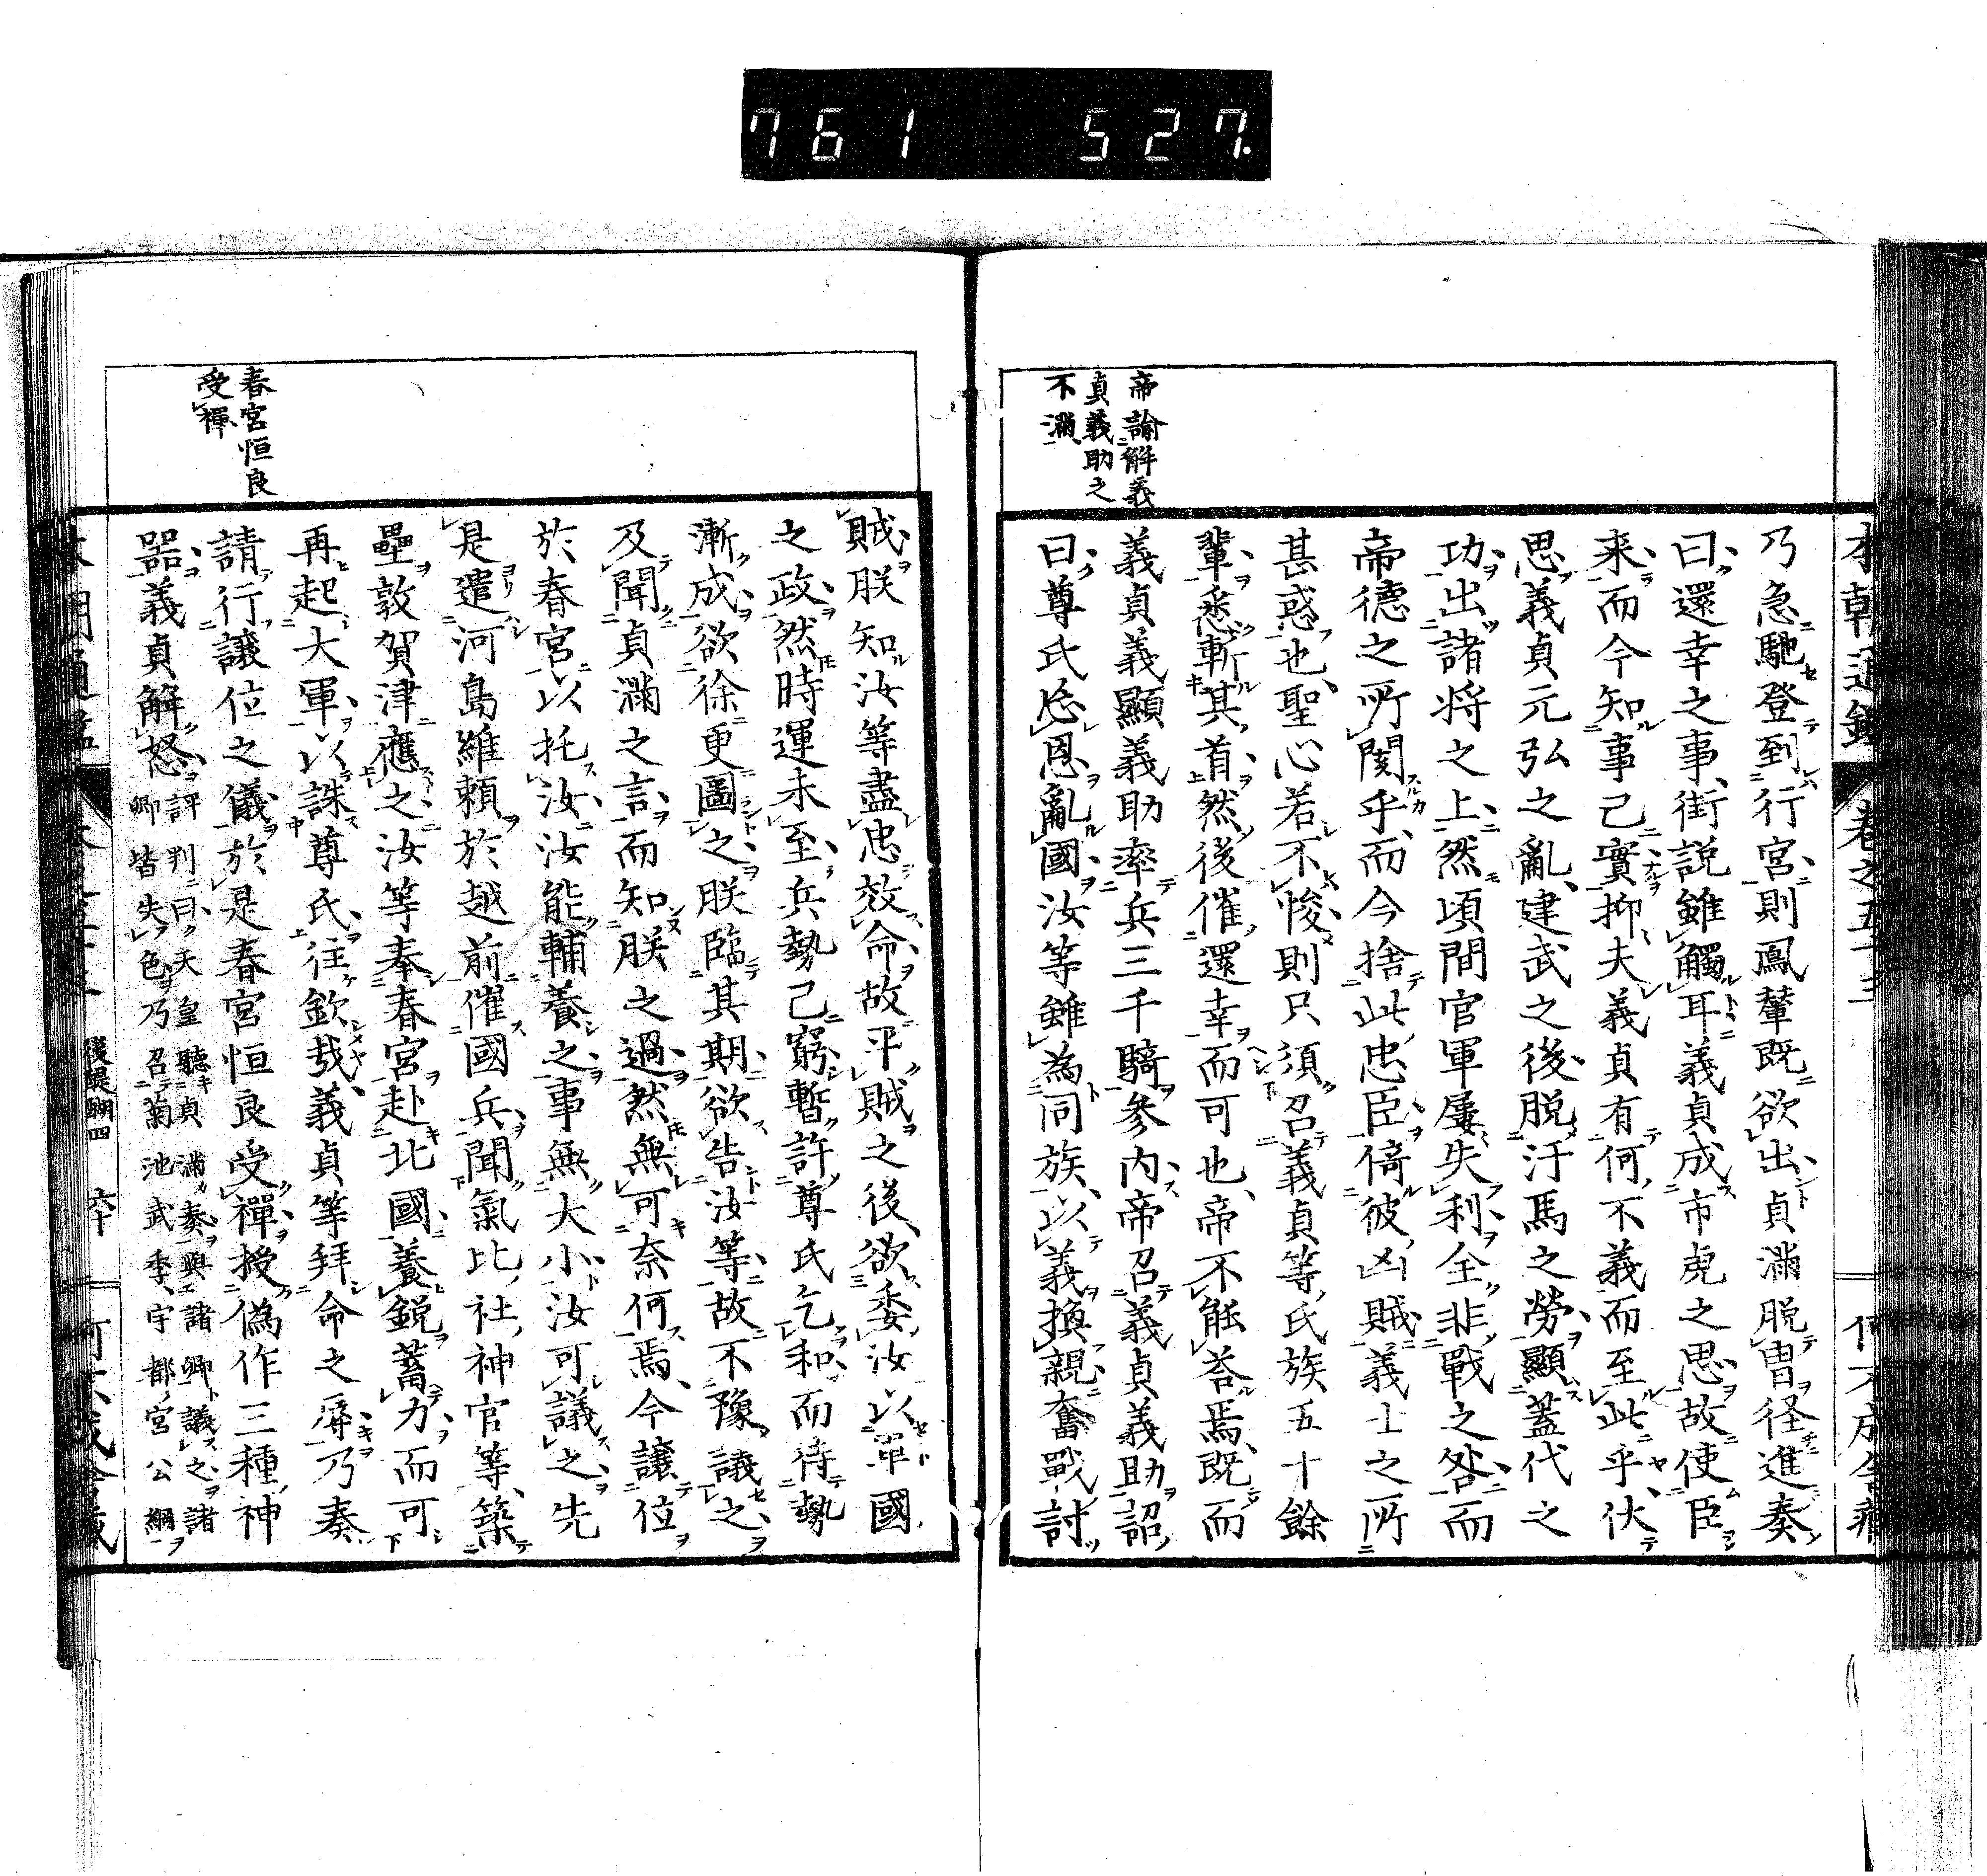 761 527.
本朝通鑑 卷之五十三
帝諭解義
貞義助之
不滿
乃急馳登到行宮則鳳輦既欲出貞滿脫冑径進奏
曰還幸之事街説雖觸耳義貞成市虎之思故使臣
来而今知事已實抑夫義貞有何不義而至此乎伏
思義貞元弘之亂建武之後脫汗馬之勞顯蓋代之
功出諸将之上然頃間官軍屢失利全非戰之咎而
帝德之所闋乎而今捨此忠臣倚彼凶賊義士之所
甚惑也聖心若不悛則只須召義貞等氏族五十餘
輩悉斬其首然後催還幸而可也帝不能荅焉既而
義貞義顯義助率兵三千騎参内帝召義貞義助詔
曰尊氏忘恩亂國汝等雖為同族以義換親奮戰討
賊朕知汝等盡忠效命故平賊之後欲委汝以軍國
之政然時運未至兵勢已窮暫許尊氏乞和而待勢
漸成欲徐更圖之朕臨其期欲告汝等故不豫議之
及聞貞滿之言而知朕之過然無可奈何焉今讓位
於春宮以托汝汝能輔養之事無大小汝可議之先
是遣河島維頼於越前催國兵聞氣比社神官等築
壘敦賀津應之汝等奉春宮赴北國養鋭蓄力而可
再起大軍以誅尊氏往欽哉義貞等拜命之辱乃奏
請行讓位之儀於是春宮恒良受禪授偽作三種神
器義貞解怒評判曰天皇聽貞滿奏與諸卿議之諸
卿皆失色乃召菊池武季宇都宮公綱
春宮恒良
受禪
後醍醐四 六十